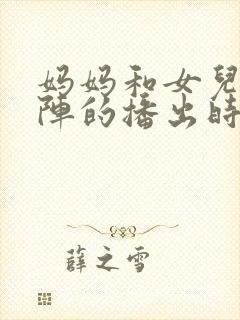 妈妈和女兒
陣的播出時
薛之雪